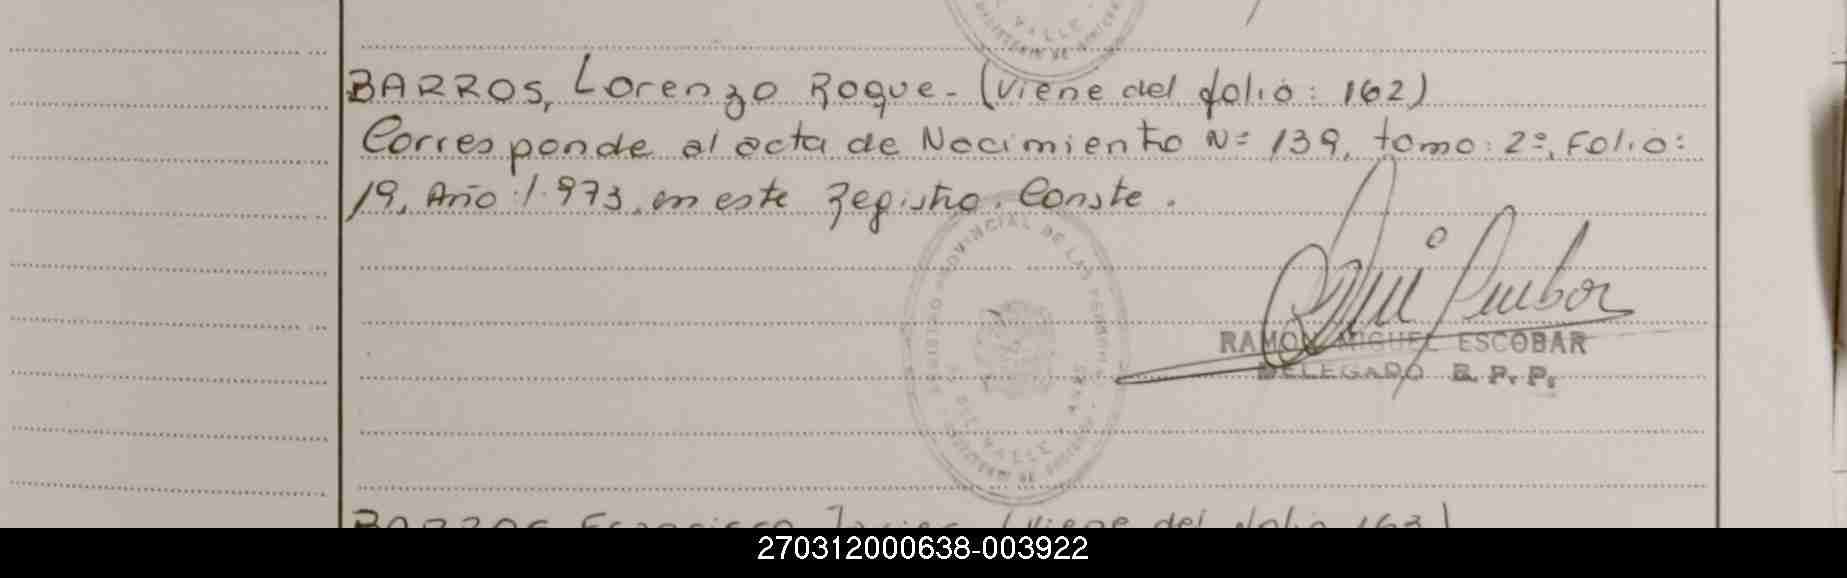 BARROS, Lorenzo Roque - (viene del folio: 162)
Corresponde al acta de Nacimiento Nº 139, tomo: 2º, Folio:
19, Año: 1.973, en este Registro. Conste.
PROVINCIAL DE LAS PERSONAS
RAMON MIGUEL ESCOBAR
DELEGADO R. P. P.
BARROS Francisco Javier (viene del folio 163)
270312000638-003922